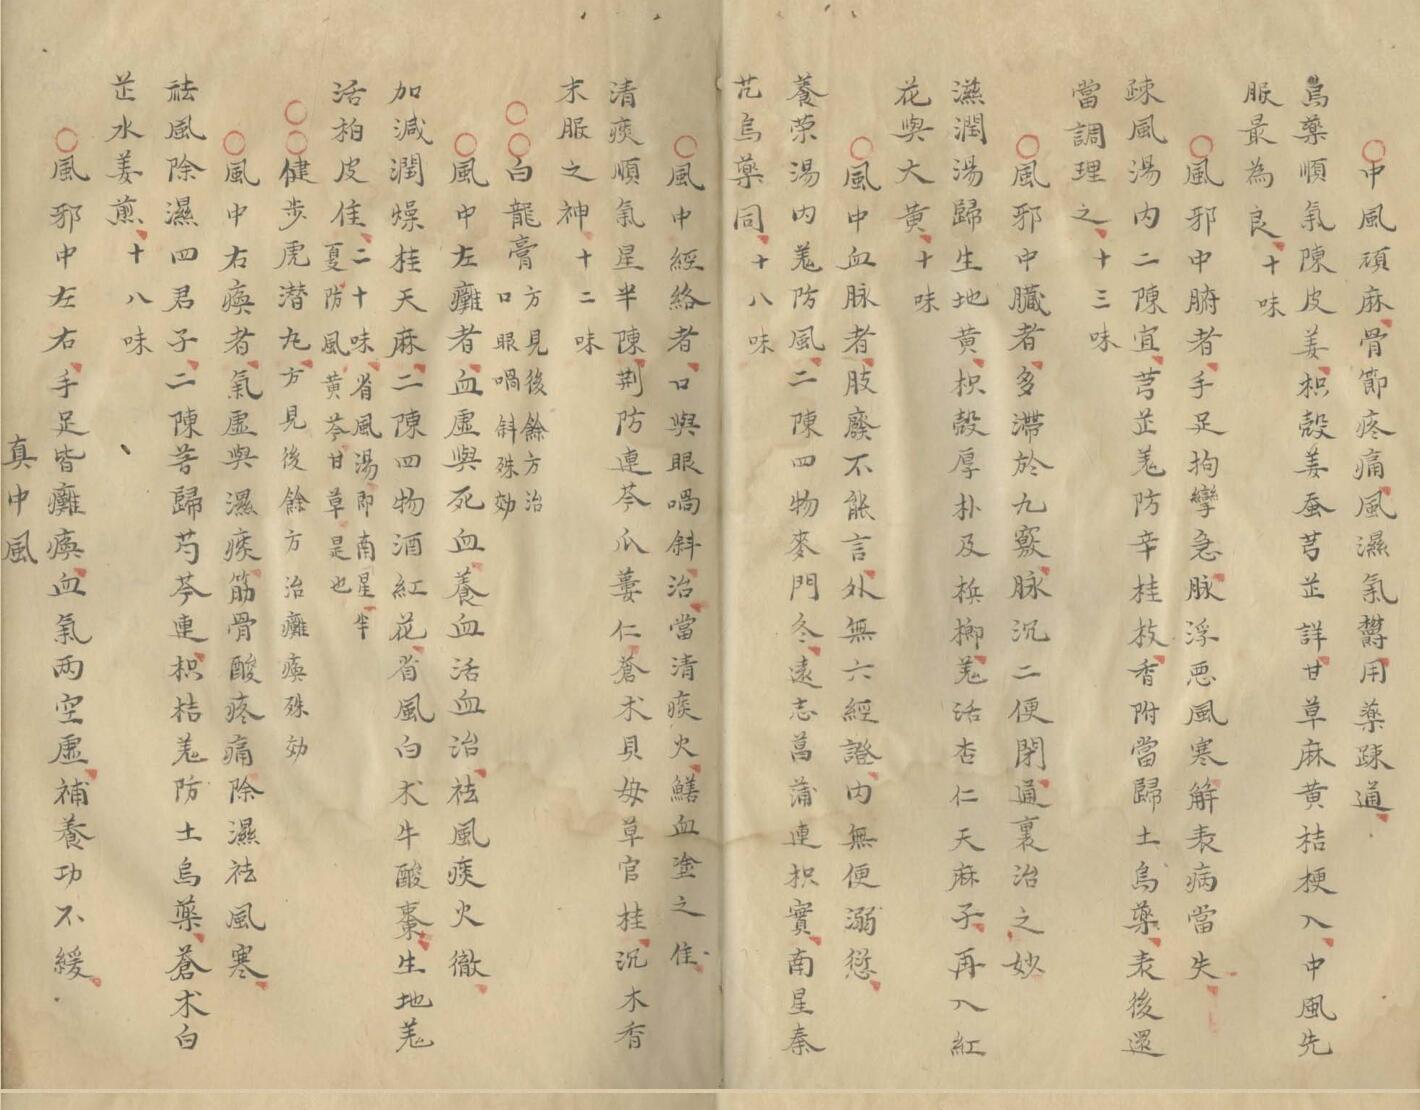 ○中風頑麻骨節疼痛風濕氣欝用藥疎通
烏藥順氣陳皮姜枳殼姜蚕芎芷詳甘草麻黄桔梗入中風先
服最為良十味
○風邪中腑者手足拘攣急脉浮惡風寒觧表病當失
疎風湯内二陳宜芎芷羗防辛桂枝香附當歸土烏藥表後還
當調理之十三味
○風邪中臓者多滯於九竅脉沉二便閉通裏治之妙
濕潤湯歸生地黄枳殼厚朴及檳榔羗活杏仁天麻子再入紅
花與大黄十味
○風中血脉者肢廢不能言外無六經證内無便溺愆
養荣湯内羗防風二陳四物麥門冬遠志菖蒲連枳實南星秦
艽烏藥同十八味
○風中經絡者口與眼喎斜治當清痰火鱔血塗之佳
清痰順氣星半陳荆防連芩瓜蔞仁蒼术貝母草官桂沉木香
末服之神十二味
○○白龍膏方見後餘方治口眼喎斜殊効
○風中左癱者血虛與死血養血活血治祛風痰火徹
加減潤燥桂天麻二陳四物酒紅花省風白术牛酸棗生地羗
活柏皮佳二十味省風湯即南星半夏防風黄芩甘草是也
○○健步虎潜丸方見後餘方治癱瘓殊効
○風中右瘓者氣虛與濕痰筋骨酸疼痛除濕祛風寒
祛風除濕四君子二陳苦歸芍芩連枳桔羗防土烏藥蒼术白
芷水姜煎十八味
○風邪中左右手足皆癱瘓血氣兩空虛補養功不緩
真中風